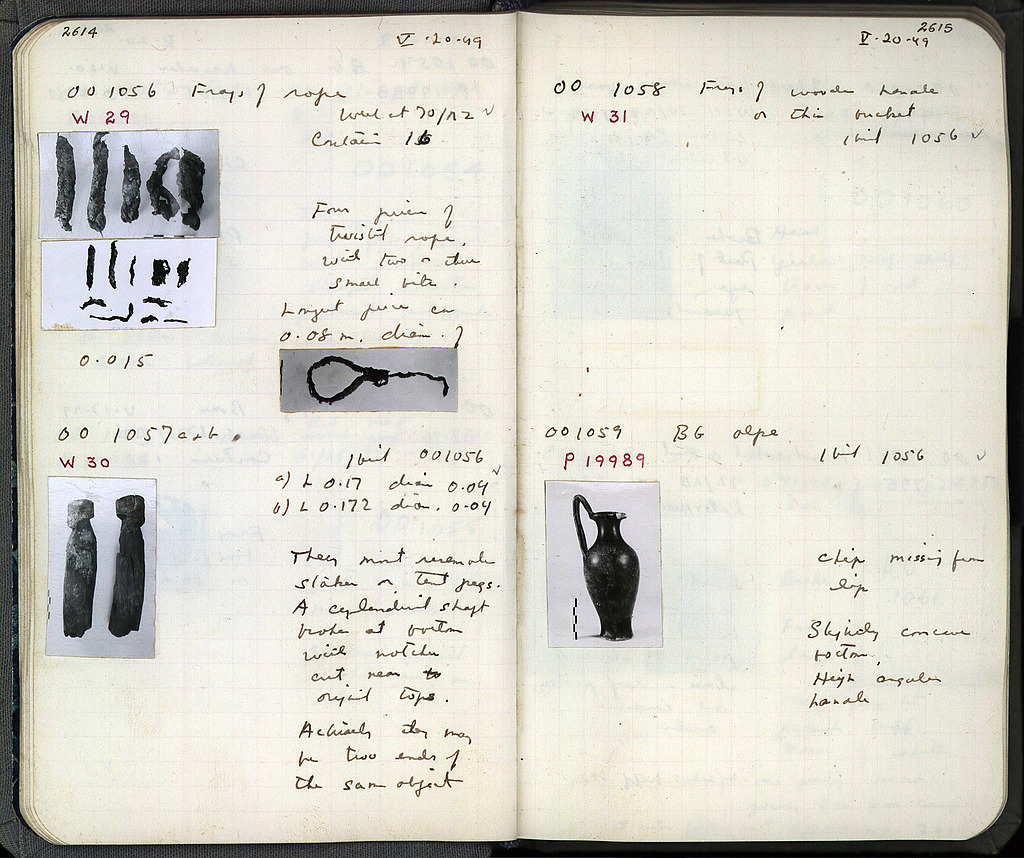 2614
V · 20 · 49
OO 1056 Frags of rope
W 29
Well at 70/ΠΖ √
Contain 16
Four pieces of
twist'd rope,
with two or three
small bits.
Longest piece ca
0.08 m. diam. of
0.015
OO 1057 a+b.
W 30
ibid OO1056 √
a) L 0.17 diam 0.04
b) L 0.172 diam. 0.04
They most resemble
stakes or tent pegs.
A cylindrical shaft
broken at bottom
with notches
cut near to
original tops.
Actually they may
be two ends of
the same object
2615
V · 20 · 49
OO 1058 Frags of wooden handle
W 31
or thin bucket
ibid 1056 √
OO 1059 BG olpe
P 19989
ibid 1056 √
Chip missing from
lip
Slightly concave
bottom.
High angular
handle